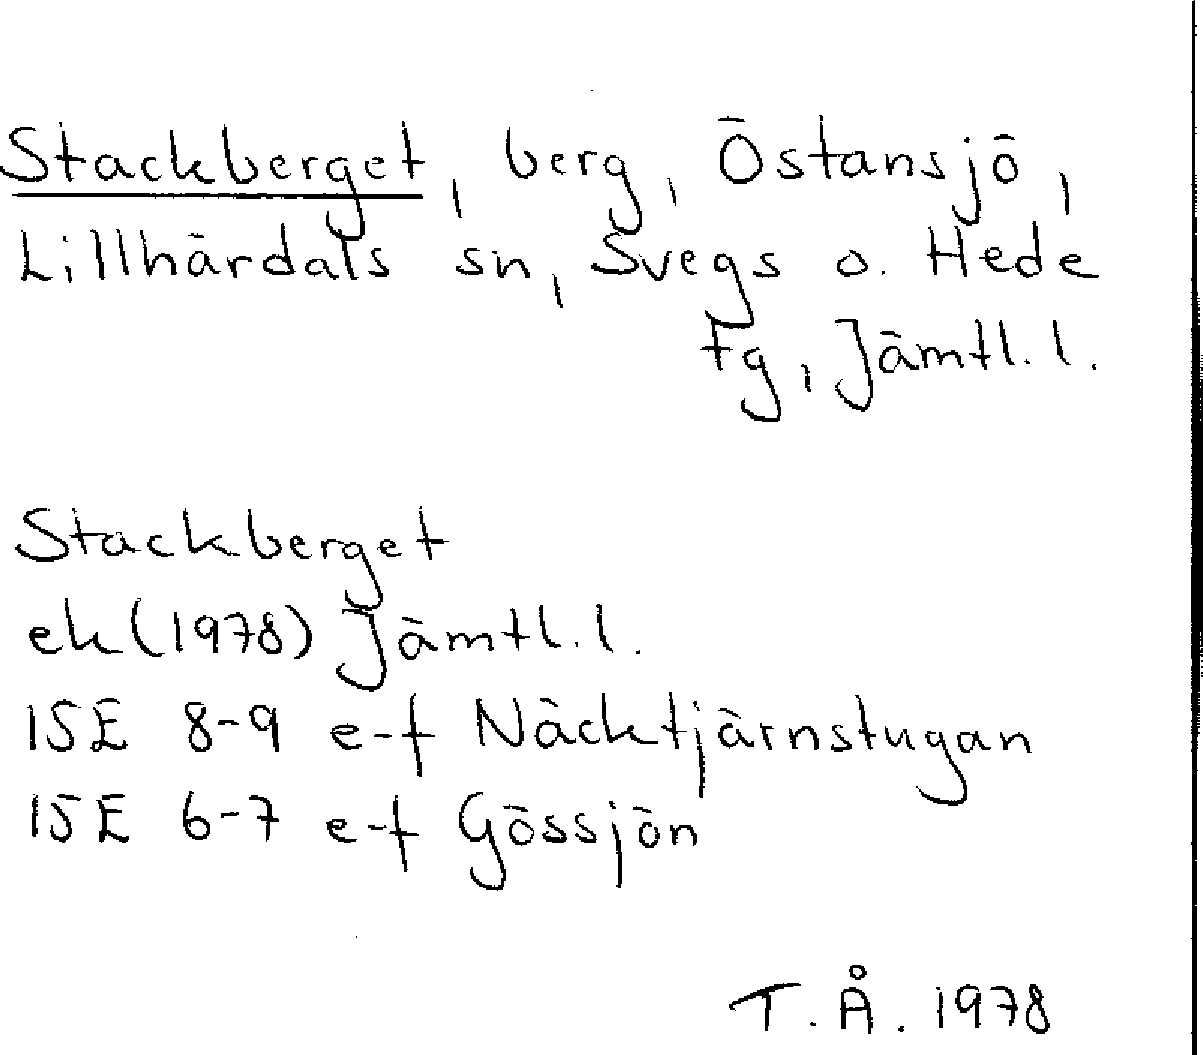 Stackberget, berg, Östansjö,
Lillhärdals sn, Svegs o. Hede
tg, Jämtl. l.
Stackberget
ek (1978) Jämtl. l.
15E 8-9 e-f Näcktjärnstugan
15E 6-7 e-f Gössjön
T. Å. 1978